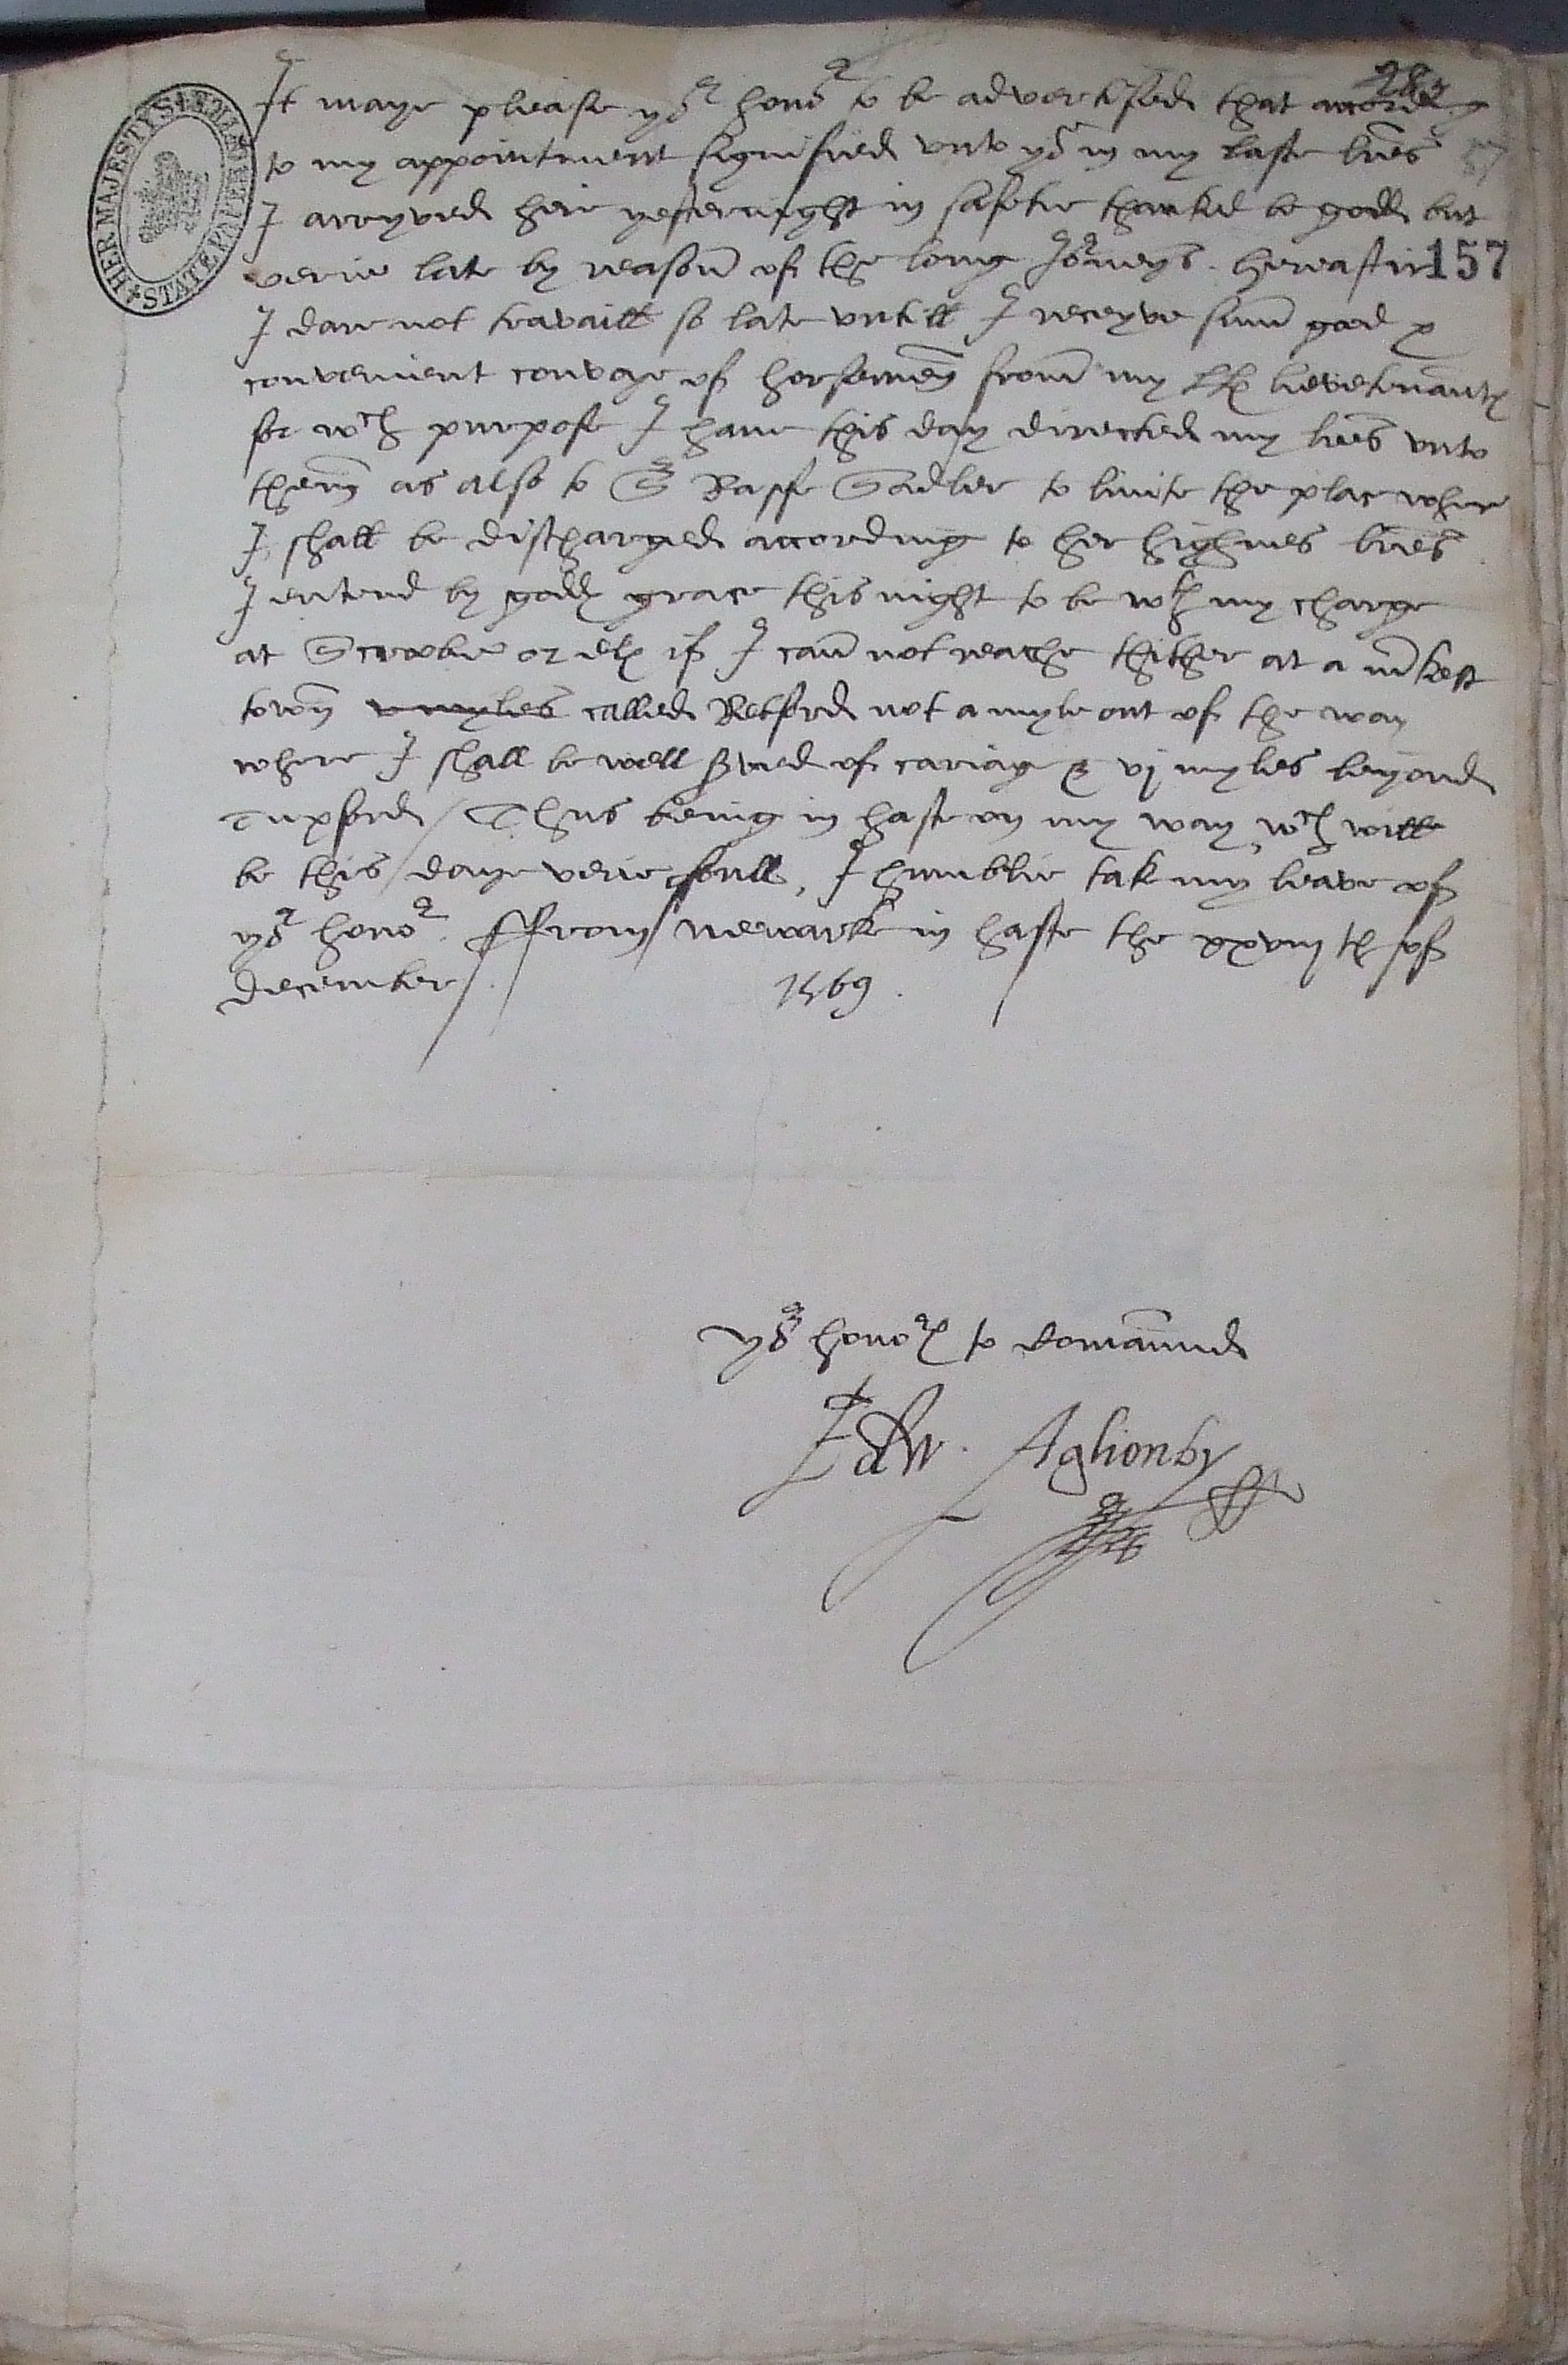 It maye please yor honor to be advertised that according
to my appointment signified unto yor in my laste lres
I arryved here yesternyght in safetie thanked be godd but
verie late by reason of the long Jorneys . hereafter
157
I dare not travaill so late untill I receyve sum good &
convenient convoye of horsemen from my LLs lievetenantes
for wch purpose I have this day directed my lres unto
them as also to Sr Raffe Sadler to limite the place where
I shall be discharged according to her highnes lres
I entend by goddes grace this night to be wth my charge
at Scrobie or els if I can not reache thither at a mrket
town v myles called Retford not a myle out of the way
where I shall be well served of cariag & vj myles beyond
Tuxford / Thus being in haste on my way wch will
be this daye verie foull, I humblie take my leave of
yor honor . ffrom newarke in haste the xxviijth of
december / . 1569 .
yor honors to comaund
Edw . Aglionby
HER MAJESTY'S STATE PAPER OFFICE